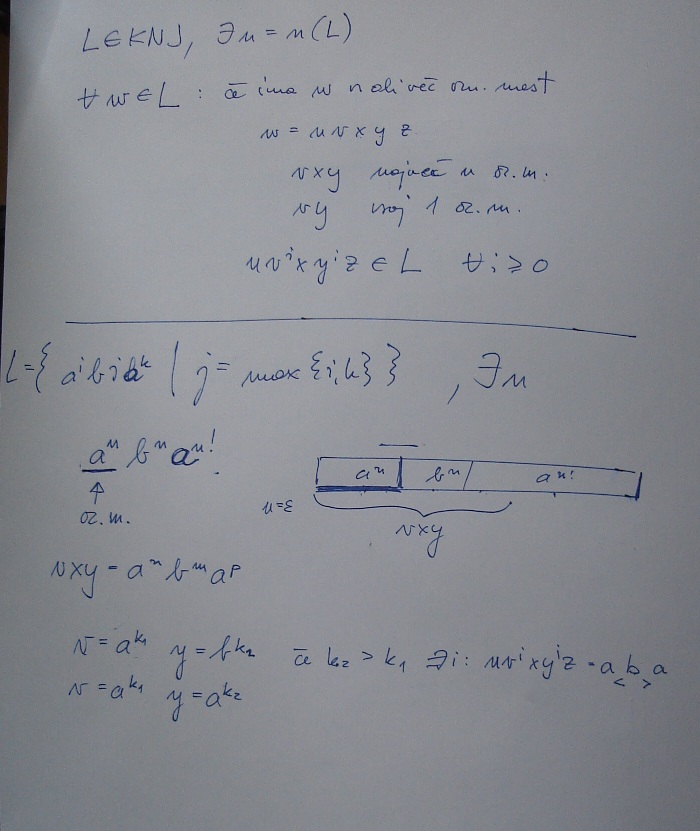 L∈KNJ, ∃n = n(L)
∀w∈L : če ima w n ali več oz. mest
w = u v x y z
vxy največ n oz. m.
vy vsaj 1 oz. m.
uvⁱxyⁱz ∈ L ∀i ≥ 0
L={ aⁱbʲaᵏ | j = max {i,k} } , ∃n
aⁿ bⁿ aⁿ!
↑
oz. m.
aⁿ bⁿ aⁿ!
u=ε
vxy
vxy = aⁿ bᵐ aᵖ
v = aᵏ¹ y = bᵏ² če k₂ > k₁ ∃i: uvⁱxyⁱz = a b a
< >
v = aᵏ¹ y = aᵏ²